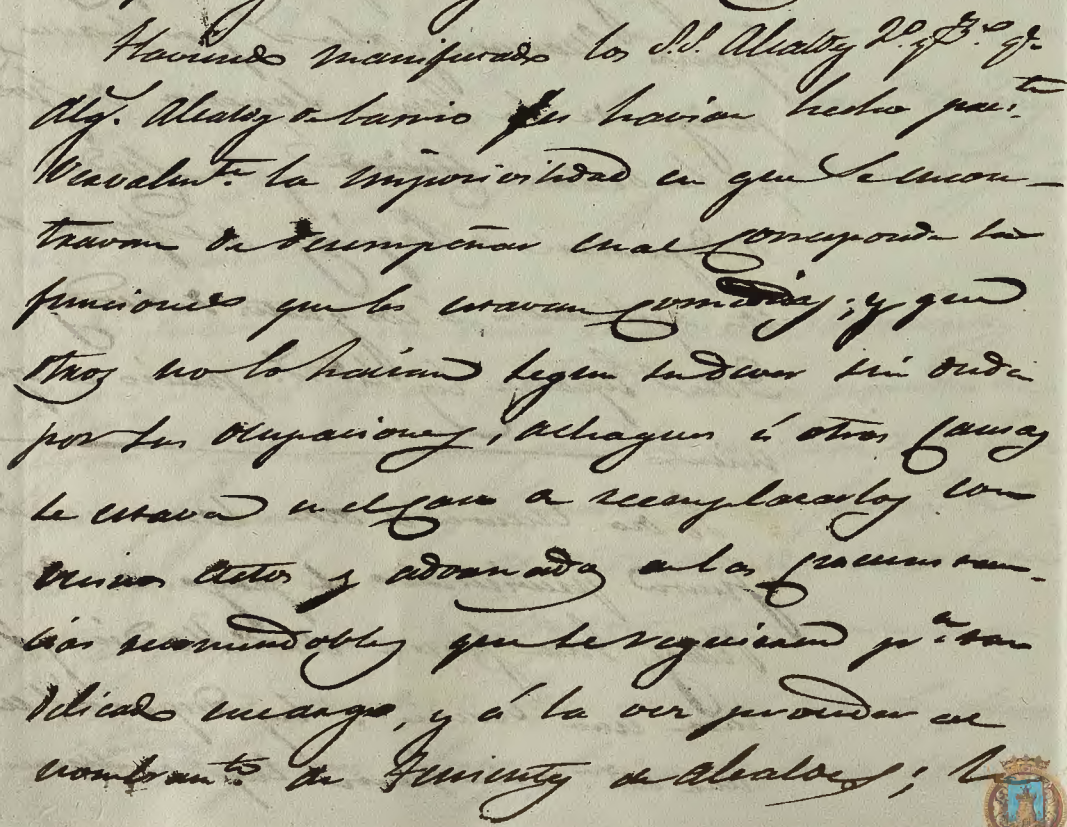 Haviendo manifestado los S.S. Alcaldes 2º y 3º qe.
alg. Alcaldes de barrio les havian hecho preste.
vervalmte. la imposivilidad en que se encon-
travan de desempeñar cual corresponde las
funciones que les estavan cometidas; y que
otros no lo hacian segun su dever sin duda
por sus ocupaciones, achaques ú otras causas
se estava en el caso de reemplazarlos con
vecinos actos y adornados de las circunstan-
cias recomendables que se requieren pª. tan
delicado encargo, y á la vez proceder al
nombramto. de Tenientes de Alcaldes;